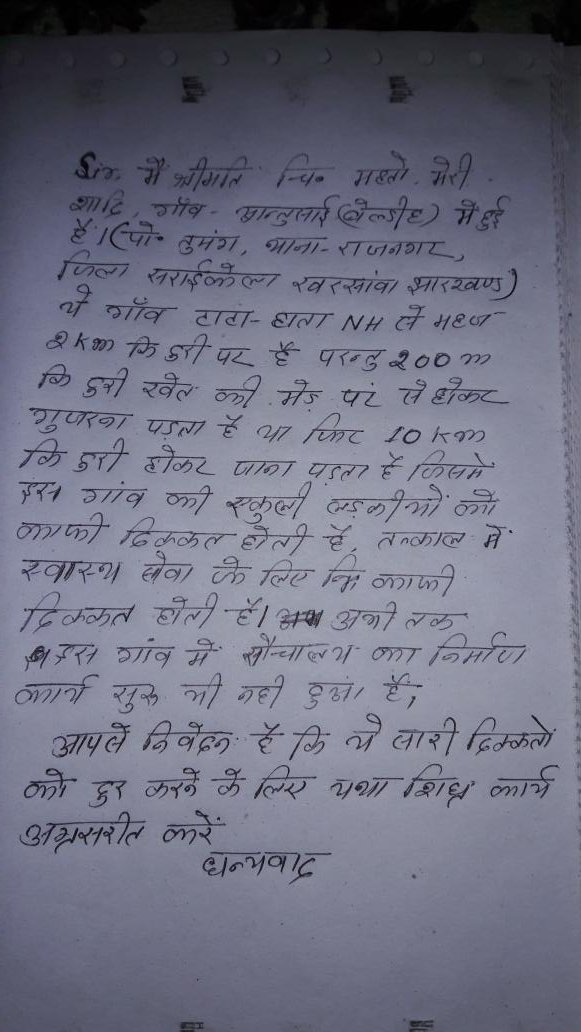 Sir, मैं श्रीमति चि॰ महतो, मेरी
शादि, गाँव - (वेल्डीह) में हुई
है।(पो॰ तुमंग, थाना - राजनगर,
जिला सराईकेला खरसांवा झारखण्ड)
ये गाँव टाटा-हाता NH से महज
2 Km कि दुरी पर है परन्तु 200 m
कि दुरी खेत की मेड़ पर से होकर
गुजरना पड़ता है या फिर 10 Km
कि दुरी होकर जाना पड़ता है जिसमे
इस गांव की स्कुली लड़कीयों को
काफी दिक्कत होती है, तत्काल में
स्वास्थ्य सेवा के लिए भि काफी
दिक्कत होती है। अभी तक
इस गांव में सौचालय का निर्माण
कार्य सुरू भी नही हुआ है,
आपसे निवेदन है कि ये सारी दिक्कतो
को दुर करने के लिए यथा शिघ्र कार्य
अग्रसरीत करें
धन्यवाद